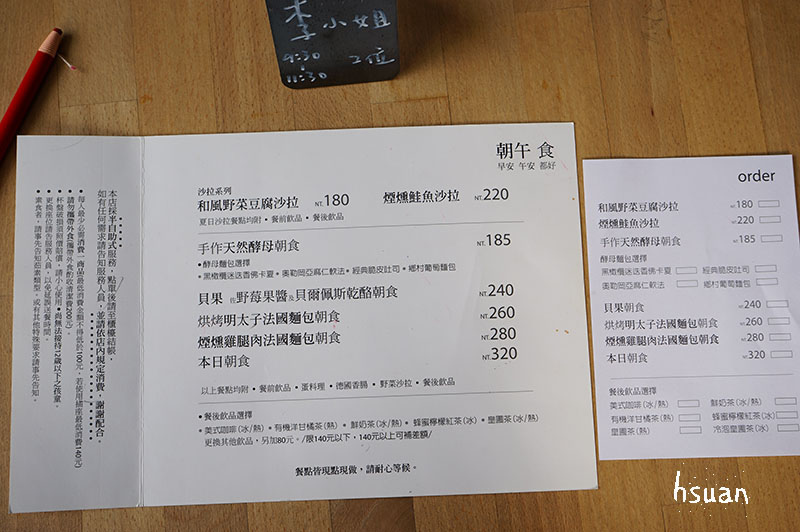 李小姐
9:30
11:30
2位
本店採半自助式服務，點單後請至櫃檯結帳
如有任何需求請告知服務人員，並請依店內規定消費，謝謝配合。
•每人最少必需消費一商品(最低消費金額不得低於100元，若使用插座最低消費140元)
•請勿攜帶外食(攜帶外食酌收清潔費200元)
•杯盤破損須照價賠償，請小心使用•尚無法接待12歲以下之孩童。
•更換座位請告服務人員，以免延誤送餐時間。
•素食者，請事先告知葷素類型，或有其他特殊要求請事先告知。
朝午 食
早安 午安 都好
沙拉系列
和風野菜豆腐沙拉 NT.180 煙燻鮭魚沙拉 NT.220
夏日沙拉餐點均附•餐前飲品•餐後飲品
手作天然酵母朝食 NT.185
•酵母麵包選擇
•黑橄欖迷迭香佛卡夏•奧勒岡亞麻仁軟法•經典脆皮吐司•鄉村葡萄麵包
貝果 佐野莓果醬及貝爾佩斯乾酪朝食 NT.240
烘烤明太子法國麵包朝食 NT.260
煙燻雞腿肉法國麵包朝食 NT.280
本日朝食 NT.320
以上餐點均附•餐前飲品•蛋料理•德國香腸•野菜沙拉•餐後飲品
•餐後飲品選擇
•美式咖啡(冰/熱)•有機洋甘橘茶(熱)•鮮奶茶(冰/熱)•蜂蜜檸檬紅茶(冰)•皇圃茶(熱)
更換其他飲品，另加80元。/限140元以下，140元以上可補差額/
餐點皆現點現做，請耐心等候。
order
和風野菜豆腐沙拉 NT.180
煙燻鮭魚沙拉 NT.220
手作天然酵母朝食 NT.185
酵母麵包選擇
黑橄欖迷迭香佛卡夏 經典脆皮吐司
奧勒岡亞麻仁軟法 鄉村葡萄麵包
貝果朝食 NT.240
烘烤明太子法國麵包朝食 NT.260
煙燻雞腿肉法國麵包朝食 NT.280
本日朝食 NT.320
餐後飲品選擇
美式咖啡(冰/熱) 鮮奶茶(冰/熱)
有機洋甘橘茶(熱) 蜂蜜檸檬紅茶(冰)
皇圃茶(熱) 冷泡皇圃茶(冰)
hsuan